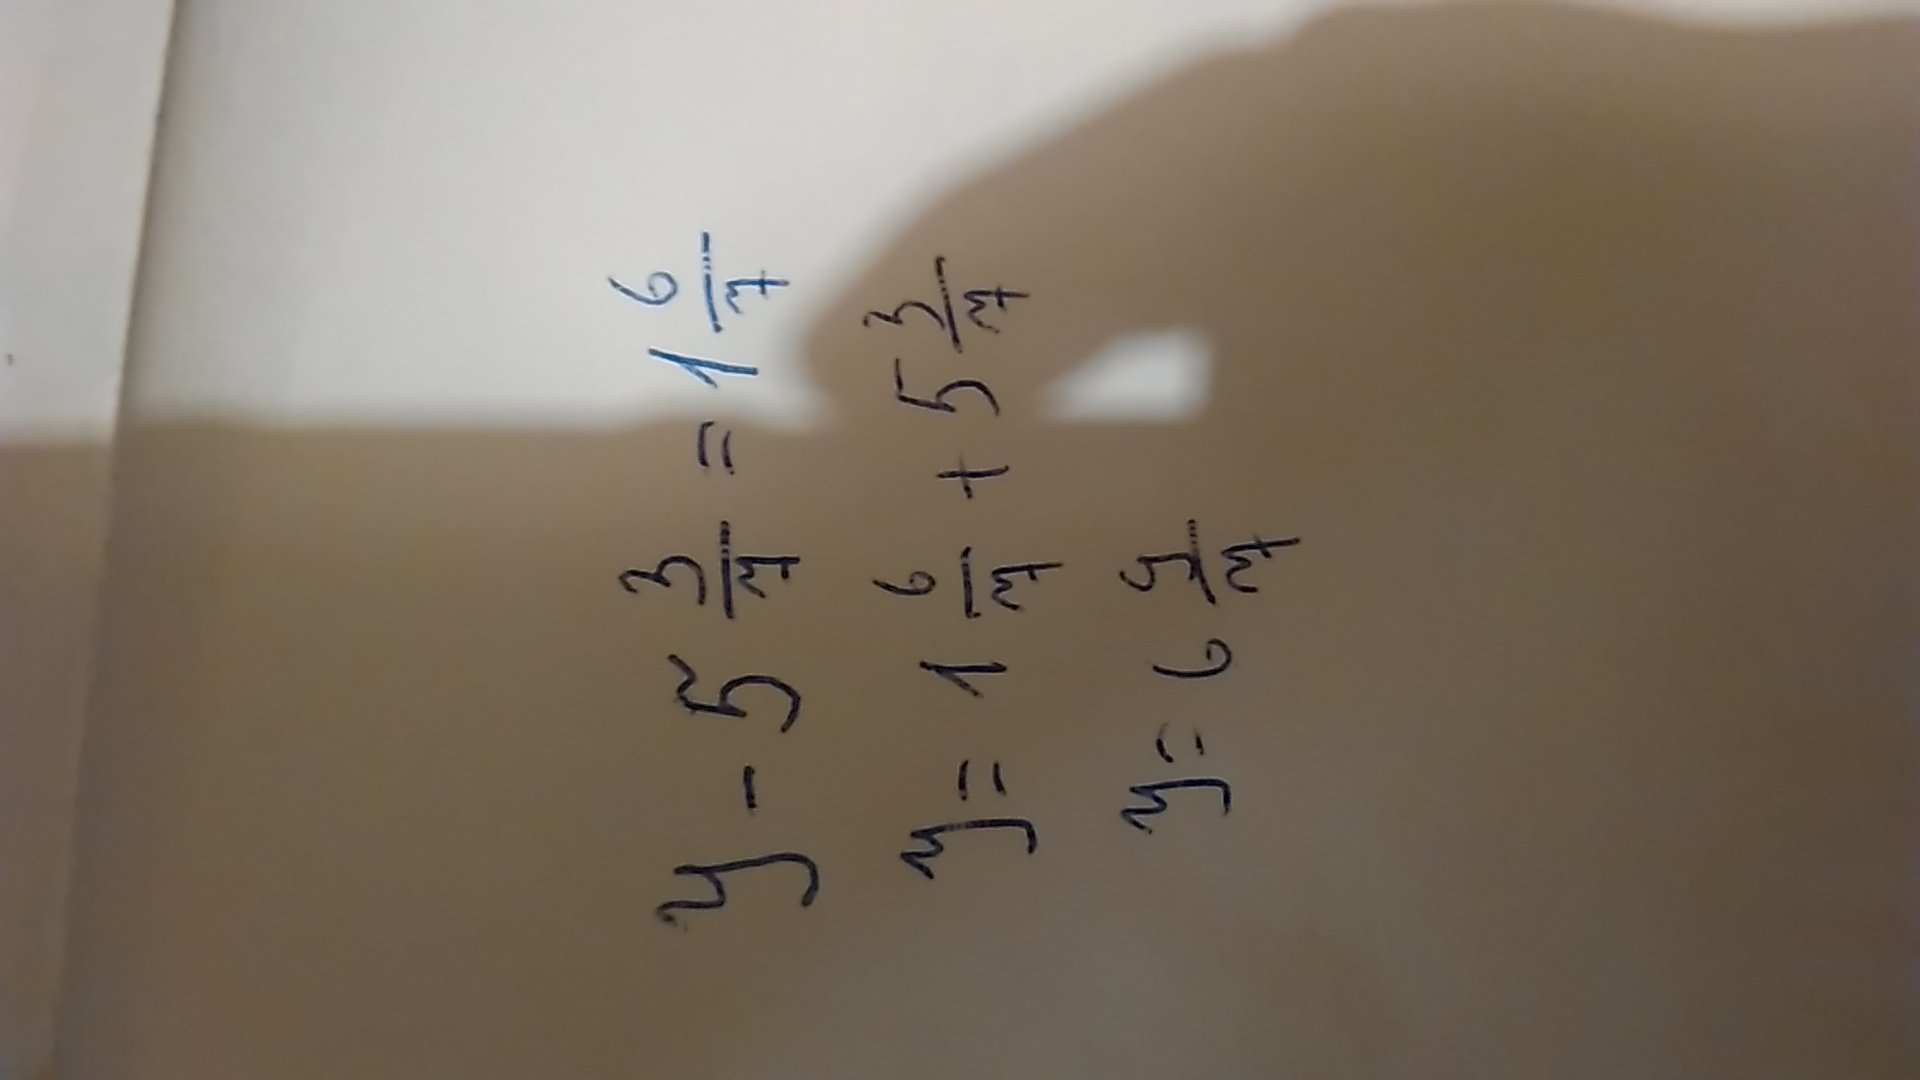 y - 5 3/7 = 1 6/7
y = 1 6/7 + 5 3/7
y = 6 9/7